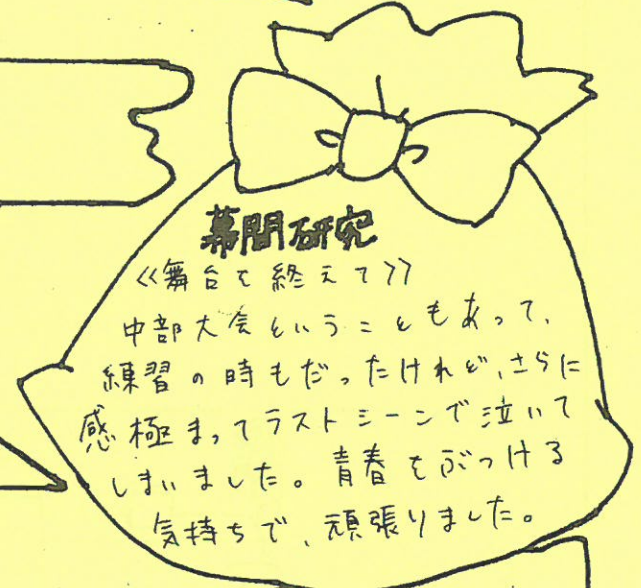 幕間研究
《舞台を終えて》
中部大会ということもあって、
練習の時もだったけれど、さらに
感極まってラストシーンで泣いて
しまいました。青春をぶつける
気持ちで、頑張りました。